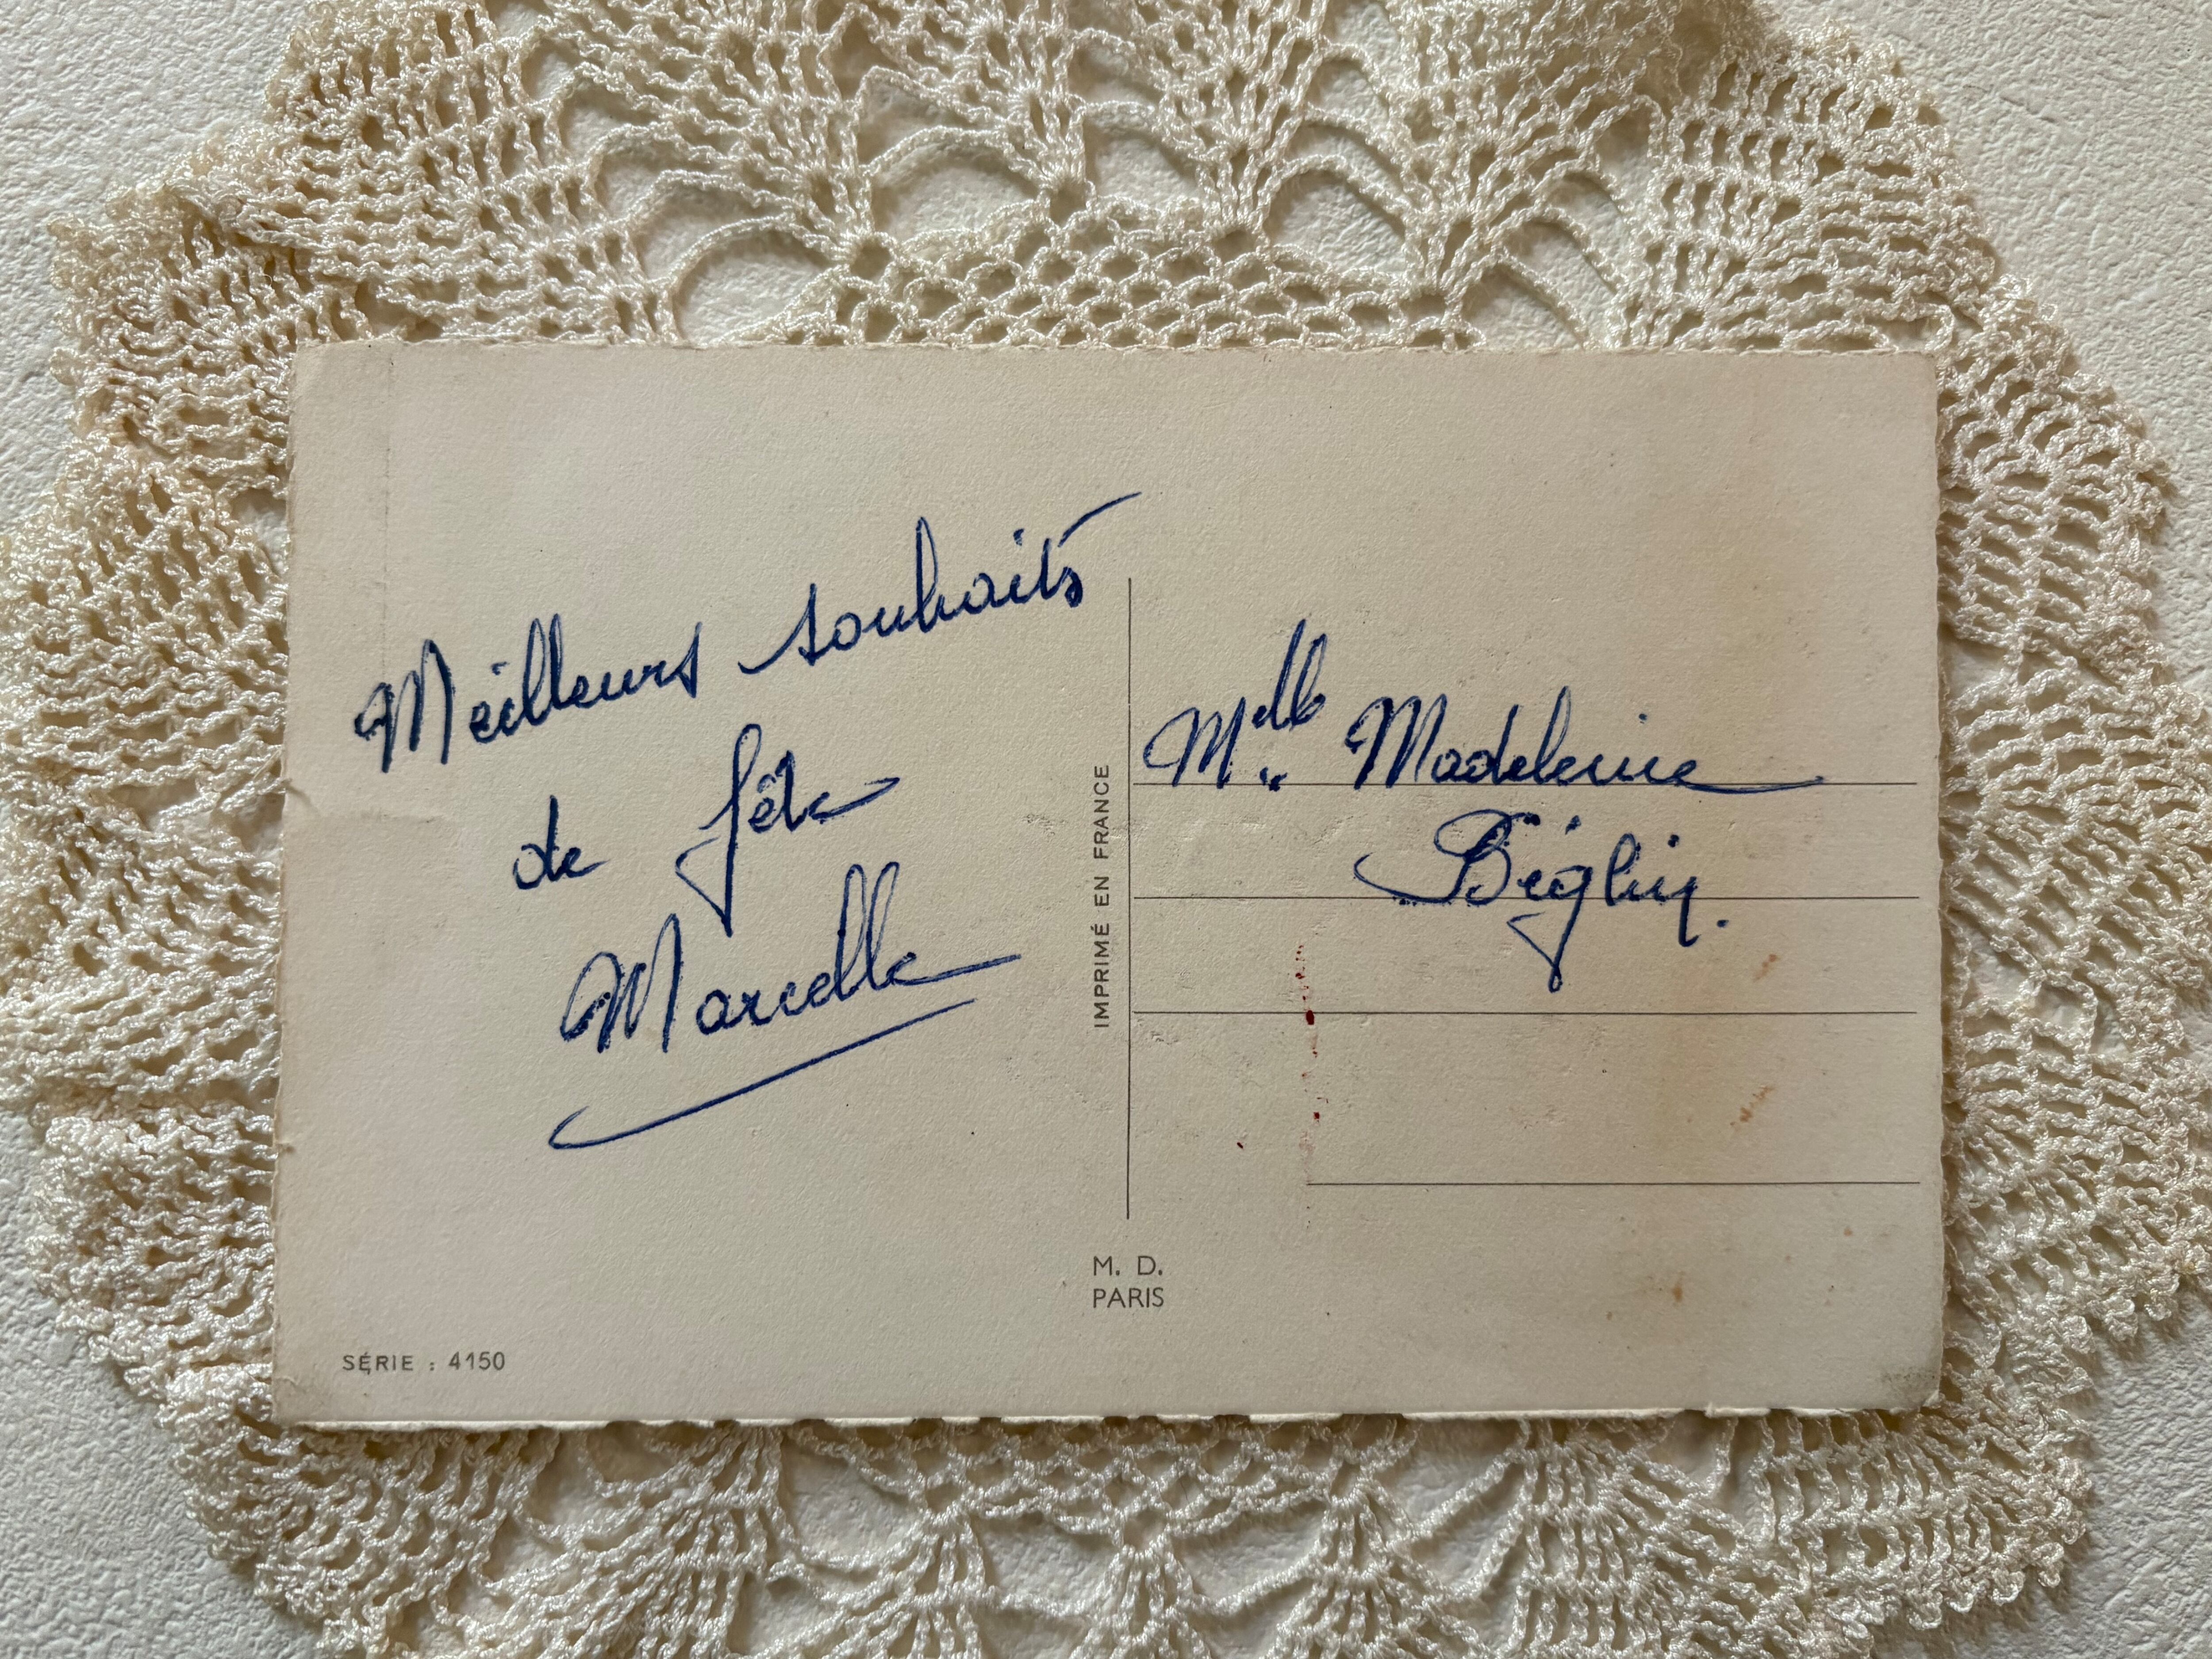 Meilleurs souhaits
de fête
Marcelle
Melle Madeleine
Béghin.
IMPRIMÉ EN FRANCE
M. D.
PARIS
SÉRIE : 4150